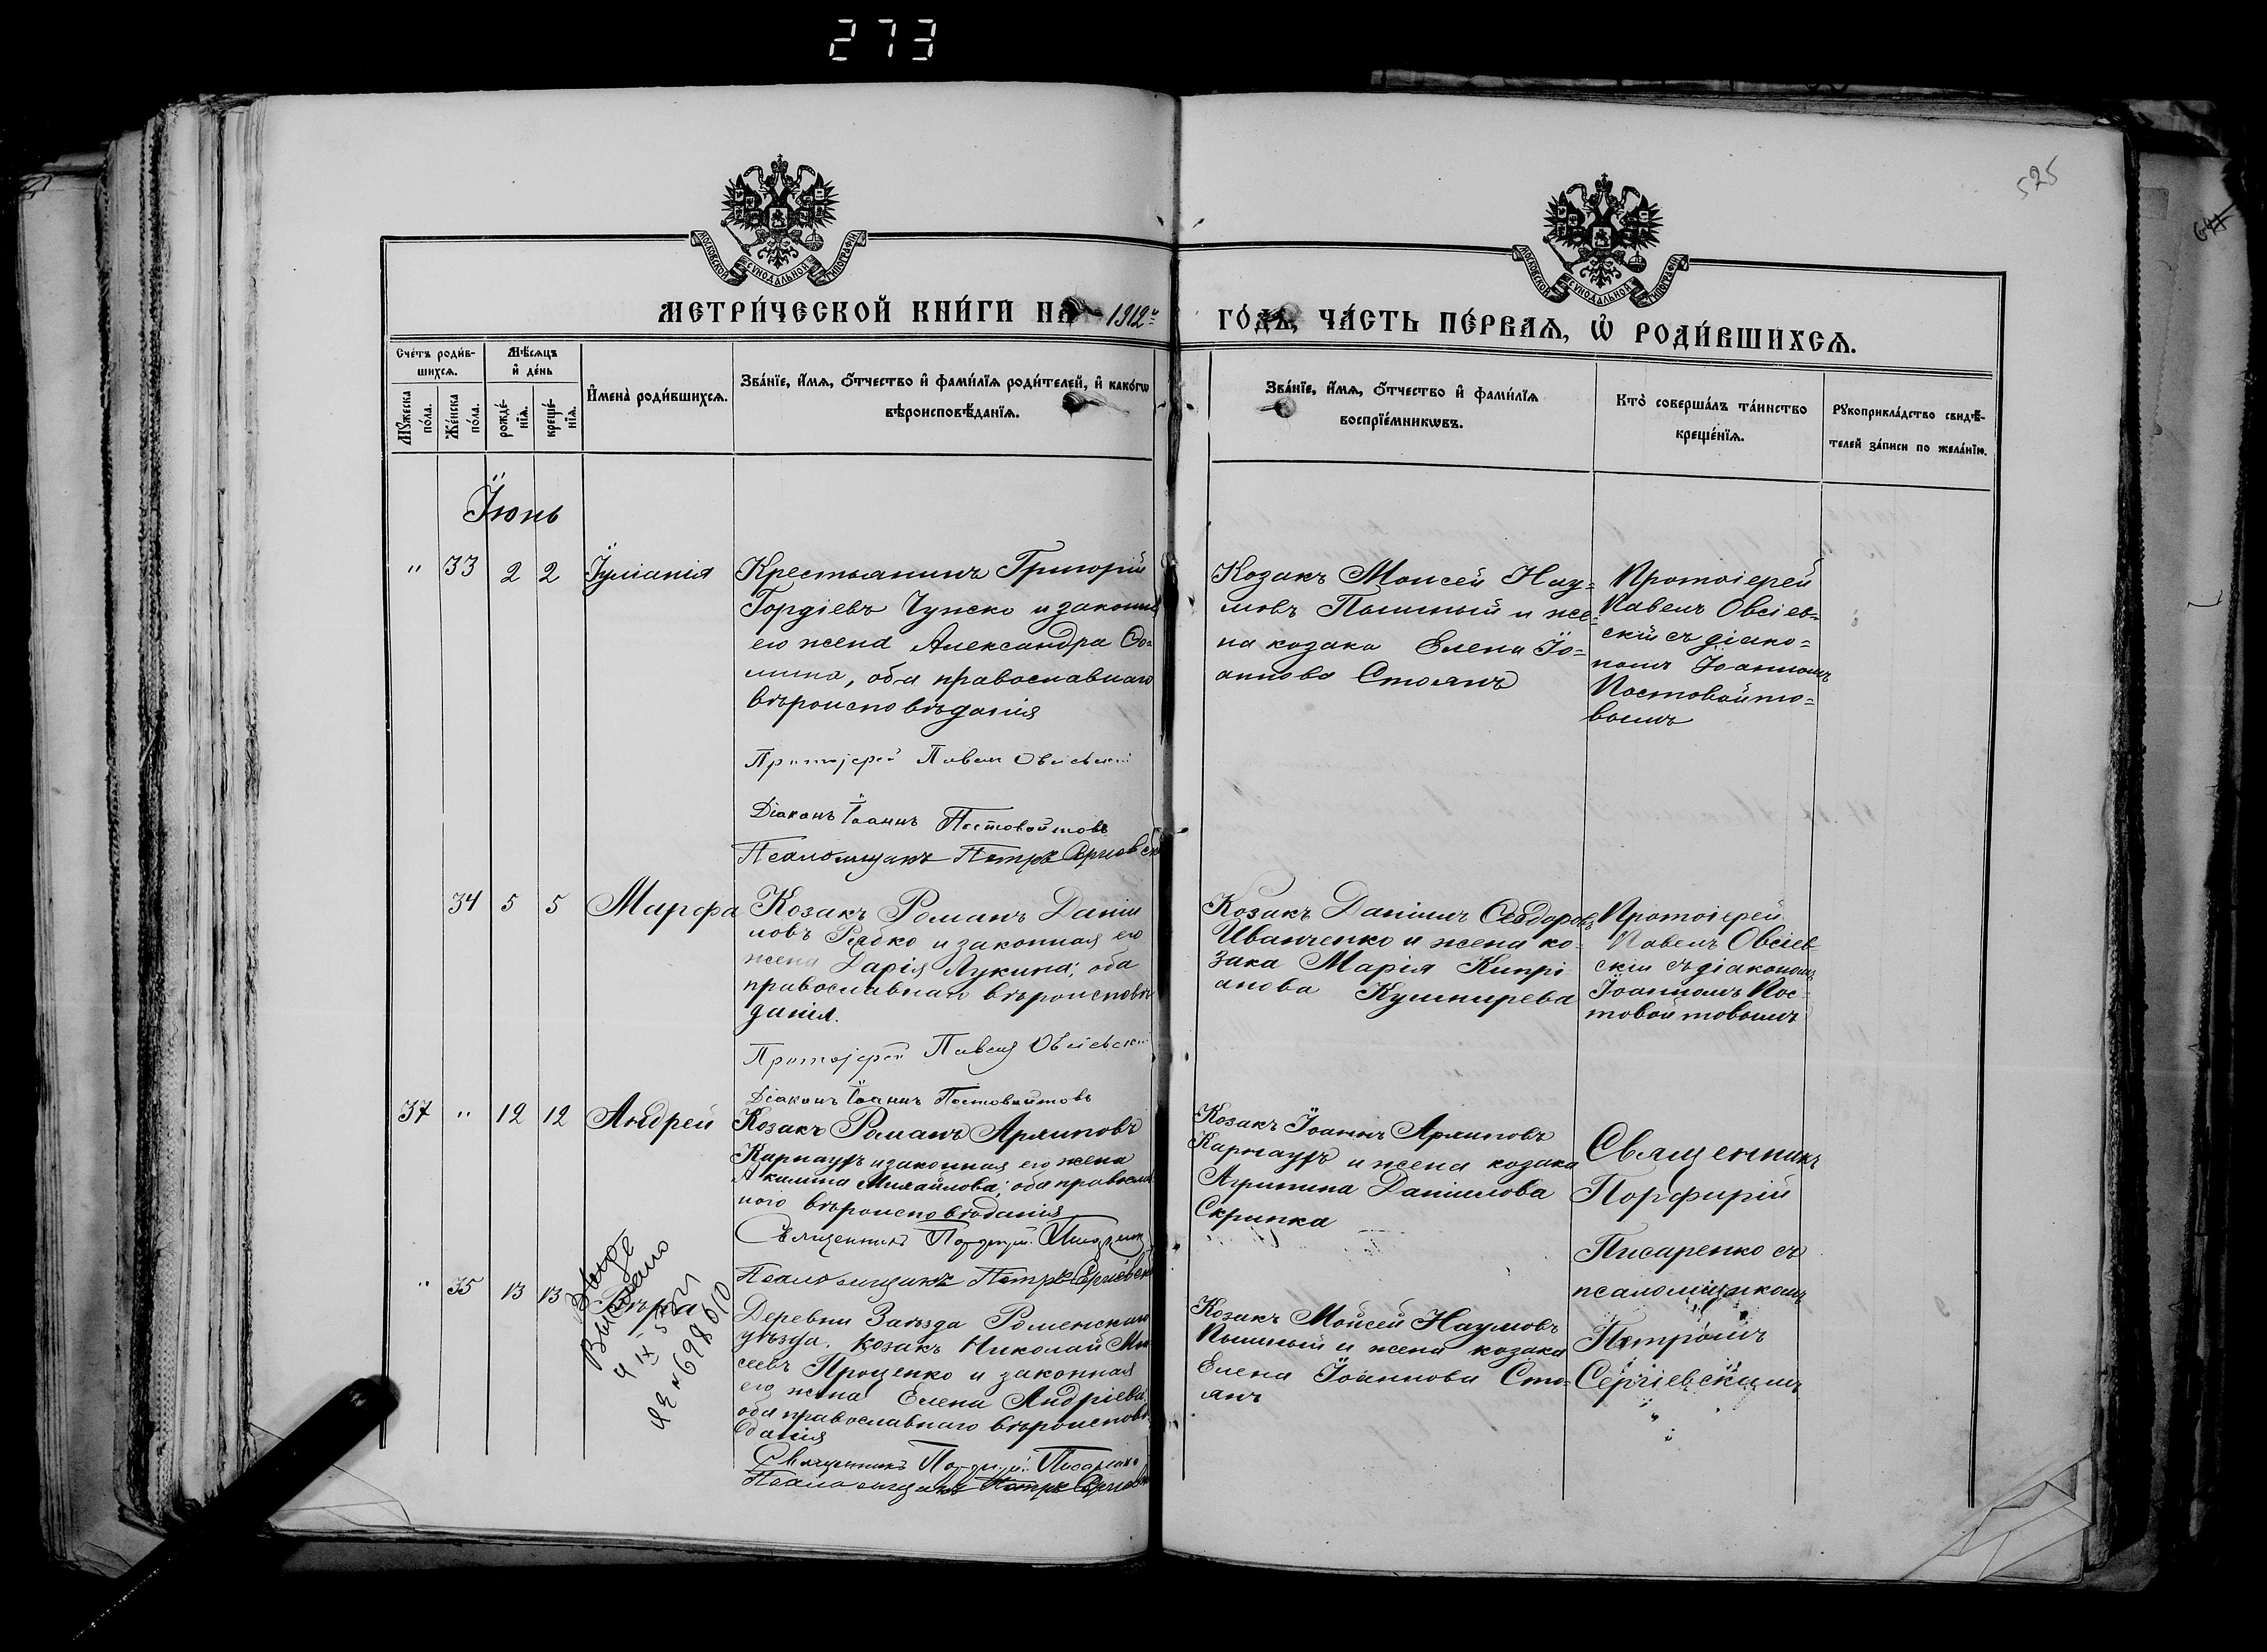 273
525
МОСКОВСКОЙ СѴНОДАЛЬНОЙ ТИПОГРАФІИ
МОСКОВСКОЙ СѴНОДАЛЬНОЙ ТИПОГРАФІИ
МЕТРИ́ЧЕСКОЙ КНИ́ГИ НА 1912й ГО́ДЪ, ЧА́СТЬ ПЕ́РВАѦ, Ѡ҆ РОДИ́ВШИХСѦ.
Сче́тъ роди́в-
шихсѧ.
Мꙋ́жеска по́ла.
Же́нска по́ла.
Мѣ́сѧцъ
и҆ де́нь
рожде́-
нїѧ.
креще́-
нїѧ.
И҆мена̀ роди́вшихсѧ.
Зва́нїе, и҆́мѧ, ѻ҆́тчество и҆ фами́лїѧ роди́телей, и҆ како́гѡ
вѣроисповѣ́данїѧ.
Зва́нїе, и҆́мѧ, ѻ҆́тчество и҆ фами́лїѧ
воспрїе́мникѡвъ.
Кто̀ соверша́лъ та́инство
креще́нїѧ.
Рꙋкоприкла́дство свидѣ́-
телей за́писи по жела́нїю.
Іюнь
" 33 2 2 Іуліанія
Крестьянинъ Григорій
Гордіевъ Чупско и законная
его жена Александра Фо-
мина, оба православнаго
вѣроисповѣданія
Протоіерей Павелъ Овсіевскій
Діаконъ Іоаннъ Постовойтовъ
Псаломщикъ Петръ Сергіевскій
Козакъ Моисей Нау-
мовъ Пышный и же-
на козака Елена Іо-
аннова Стоянъ
Протоіерей
Павелъ Овсіев-
скій съ діако-
номъ Іоанномъ
Постовойто-
вымъ
34 5 5 Марфа
Козакъ Романъ Даніи
ловъ Рябко и законная его
жена Дарія Лукина; оба
православнаго вѣроисповѣ
данія.
Протоіерей Павелъ Овсіевскій
Діаконъ Іоаннъ Постовойтовъ
Козакъ Даніилъ Ѳеодоровъ
Иванченко и жена ко-
зака Марія Кипрі
анова Кушнирева
Протоіерей
Павелъ Овсіев-
скій съ діакономъ
Іоанномъ Пос-
товойтовымъ
37 " 12 12 Андрей
Козакъ Романъ Архиповъ
Карнаухъ и законная его жена
Акилина Михайлова; оба православ
наго вѣроисповѣданія
Священникъ Порфирій Писаренко
Псаломщикъ Петръ Сергіевскій
Козакъ Іоаннъ Архиповъ
Карнаухъ и жена козака
Агрипина Даніилова
Скрипка
Священникъ
Порфирій
Писаренко съ
псаломщикомъ
Петромъ
Сергіевскимъ
" 35 13 13 Вѣра
Деревни Заѣзда Роменскаго
уѣзда, козакъ Николай Мои
сеевъ Проценко и законная
его жена Елена Андріева
оба православнаго вѣроисповѣ
данія
Священникъ Порфирій Писаренко
Псаломщикъ Петръ Сергіевскій
Козакъ Моѵсей Наумовъ
Пышный и жена козака
Елена Іоаннова Сто-
янъ
"
"
698610